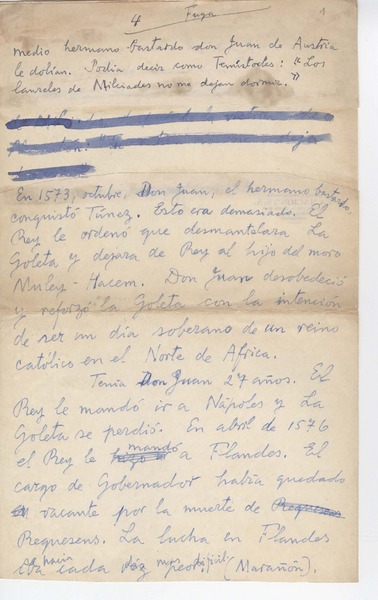 4 Fuga 1
medio hermano bastardo don Juan de Austria
le dolían. Podía decir como Temístocles: "Los
laureles de Milciades no me dejan dormir."
En 1573, octubre, Don Juan, el hermano bastardo,
conquistó Túnez. Esto era demasiado. El
Rey le ordenó que desmantelara La
Goleta y dejara de Rey al hijo del moro
Muley-Hacem. Don Juan desobedeció
y reforzó la Goleta con la intención
de ser un día soberano de un reino
católico en el Norte de Africa.
Tenía Don Juan 27 años. El
Rey le mandó ir a Nápoles y La
Goleta se perdió. En abril de 1576
el Rey le mandó a Flandes. El
cargo de Gobernador había quedado
vacante por la muerte de
Requesens. La lucha en Flandes
se hacía cada vez más difícil. (Marañón).